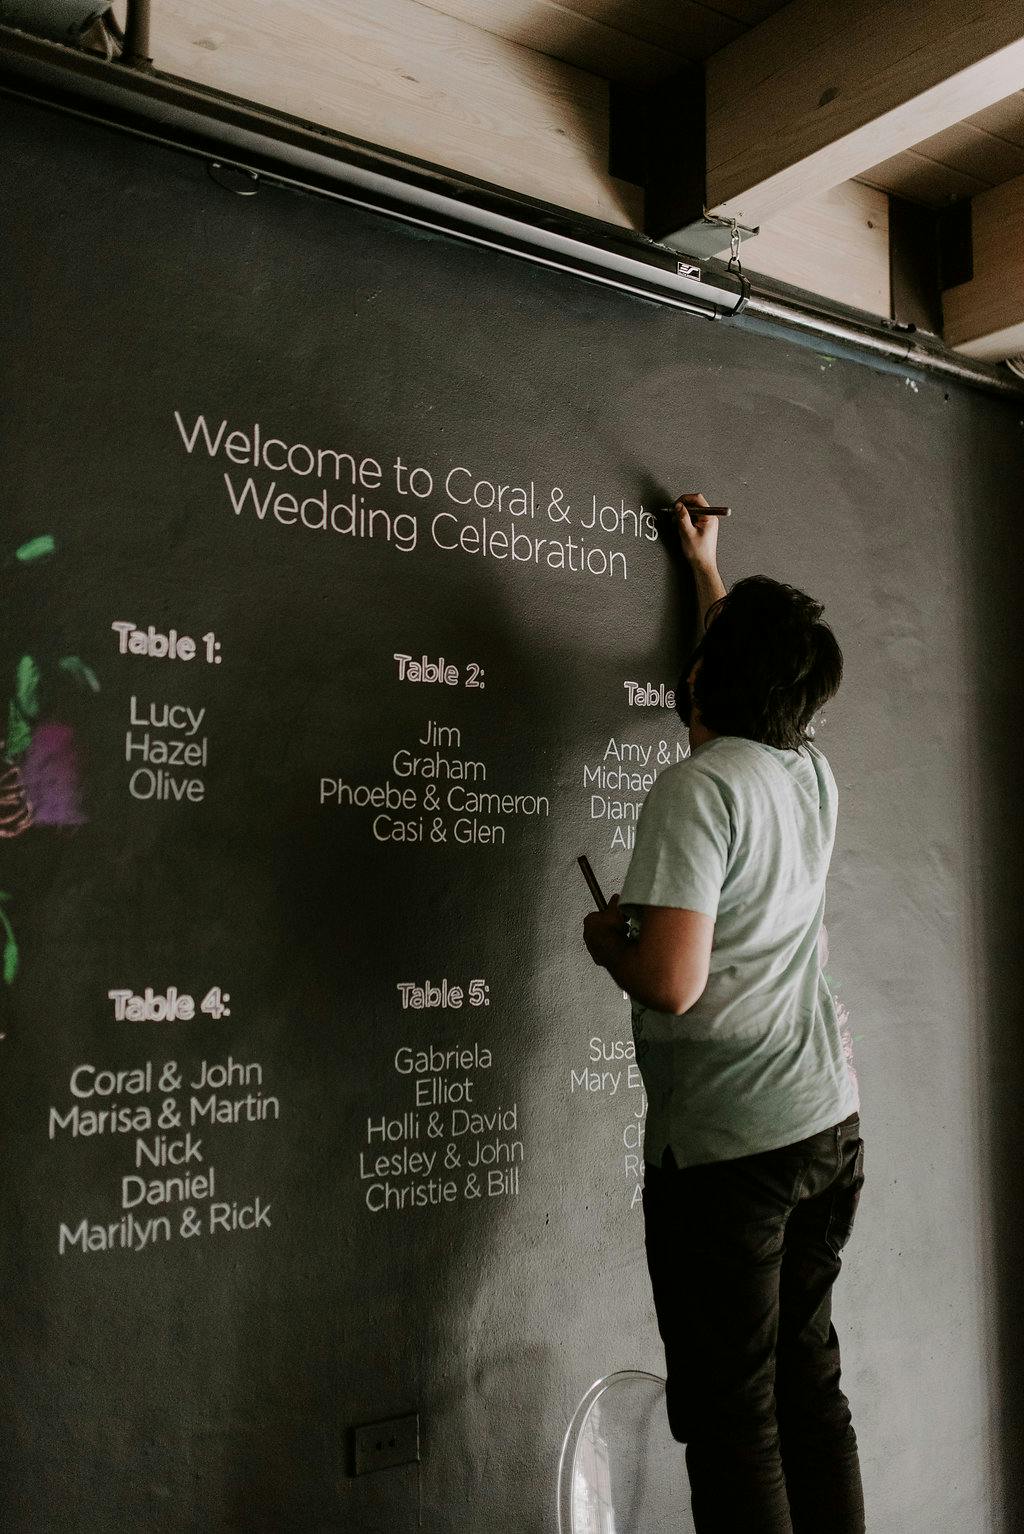 Welcome to Coral & John's
Wedding Celebration
Table 1:
Lucy
Hazel
Olive
Table 2:
Jim
Graham
Phoebe & Cameron
Casi & Glen
Table
Amy &
Michael
Table 4:
Coral & John
Marisa & Martin
Nick
Daniel
Marilyn & Rick
Table 5:
Gabriela
Elliot
Holli & David
Lesley & John
Christie & Bill
Mary